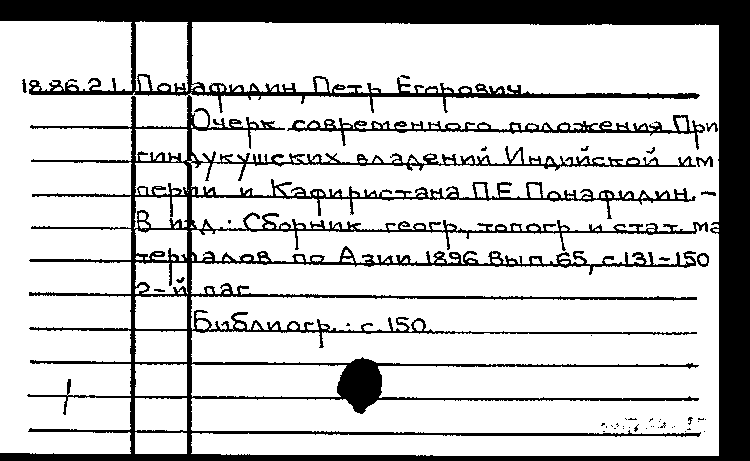 18.86.2 1. Понафидин, Петр Егорович.
Очерк современного положения При
гиндукушских владений Индийской им-
перии и Кафиристана П.Е. Понафидин. –
В изд.: Сборник геогр., топогр. и стат. ма
териалов по Азии. 1896. Вып. 65, с. 131-150
2-й паг.
Библиогр.: с. 150.